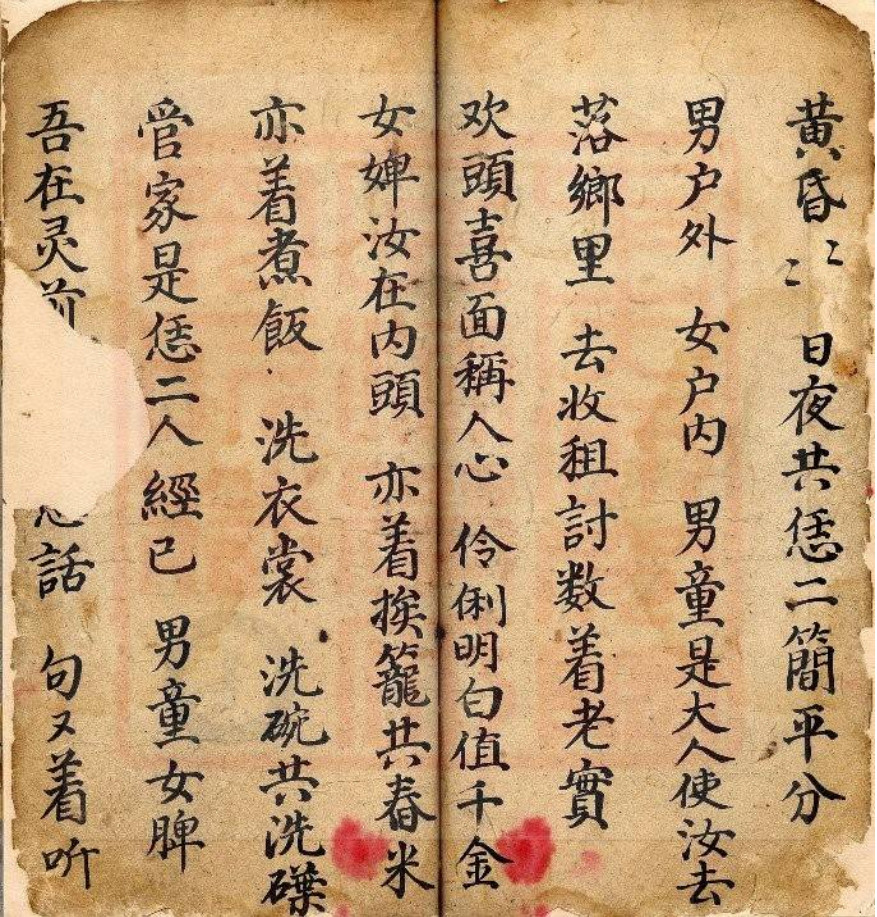 黄昏〻〻 日夜共恁二簡平分
男户外 女户内 男童是大人使汝去
落鄉里 去收租討数着老實
欢頭喜面稱人心 伶俐明白值千金
女婢汝在内頭 亦着挨籠共春米
亦着煮飯 洗衣裳 洗碗共洗碟
管家是恁二人經已 男童女脾
吾在灵前 話 句又着听